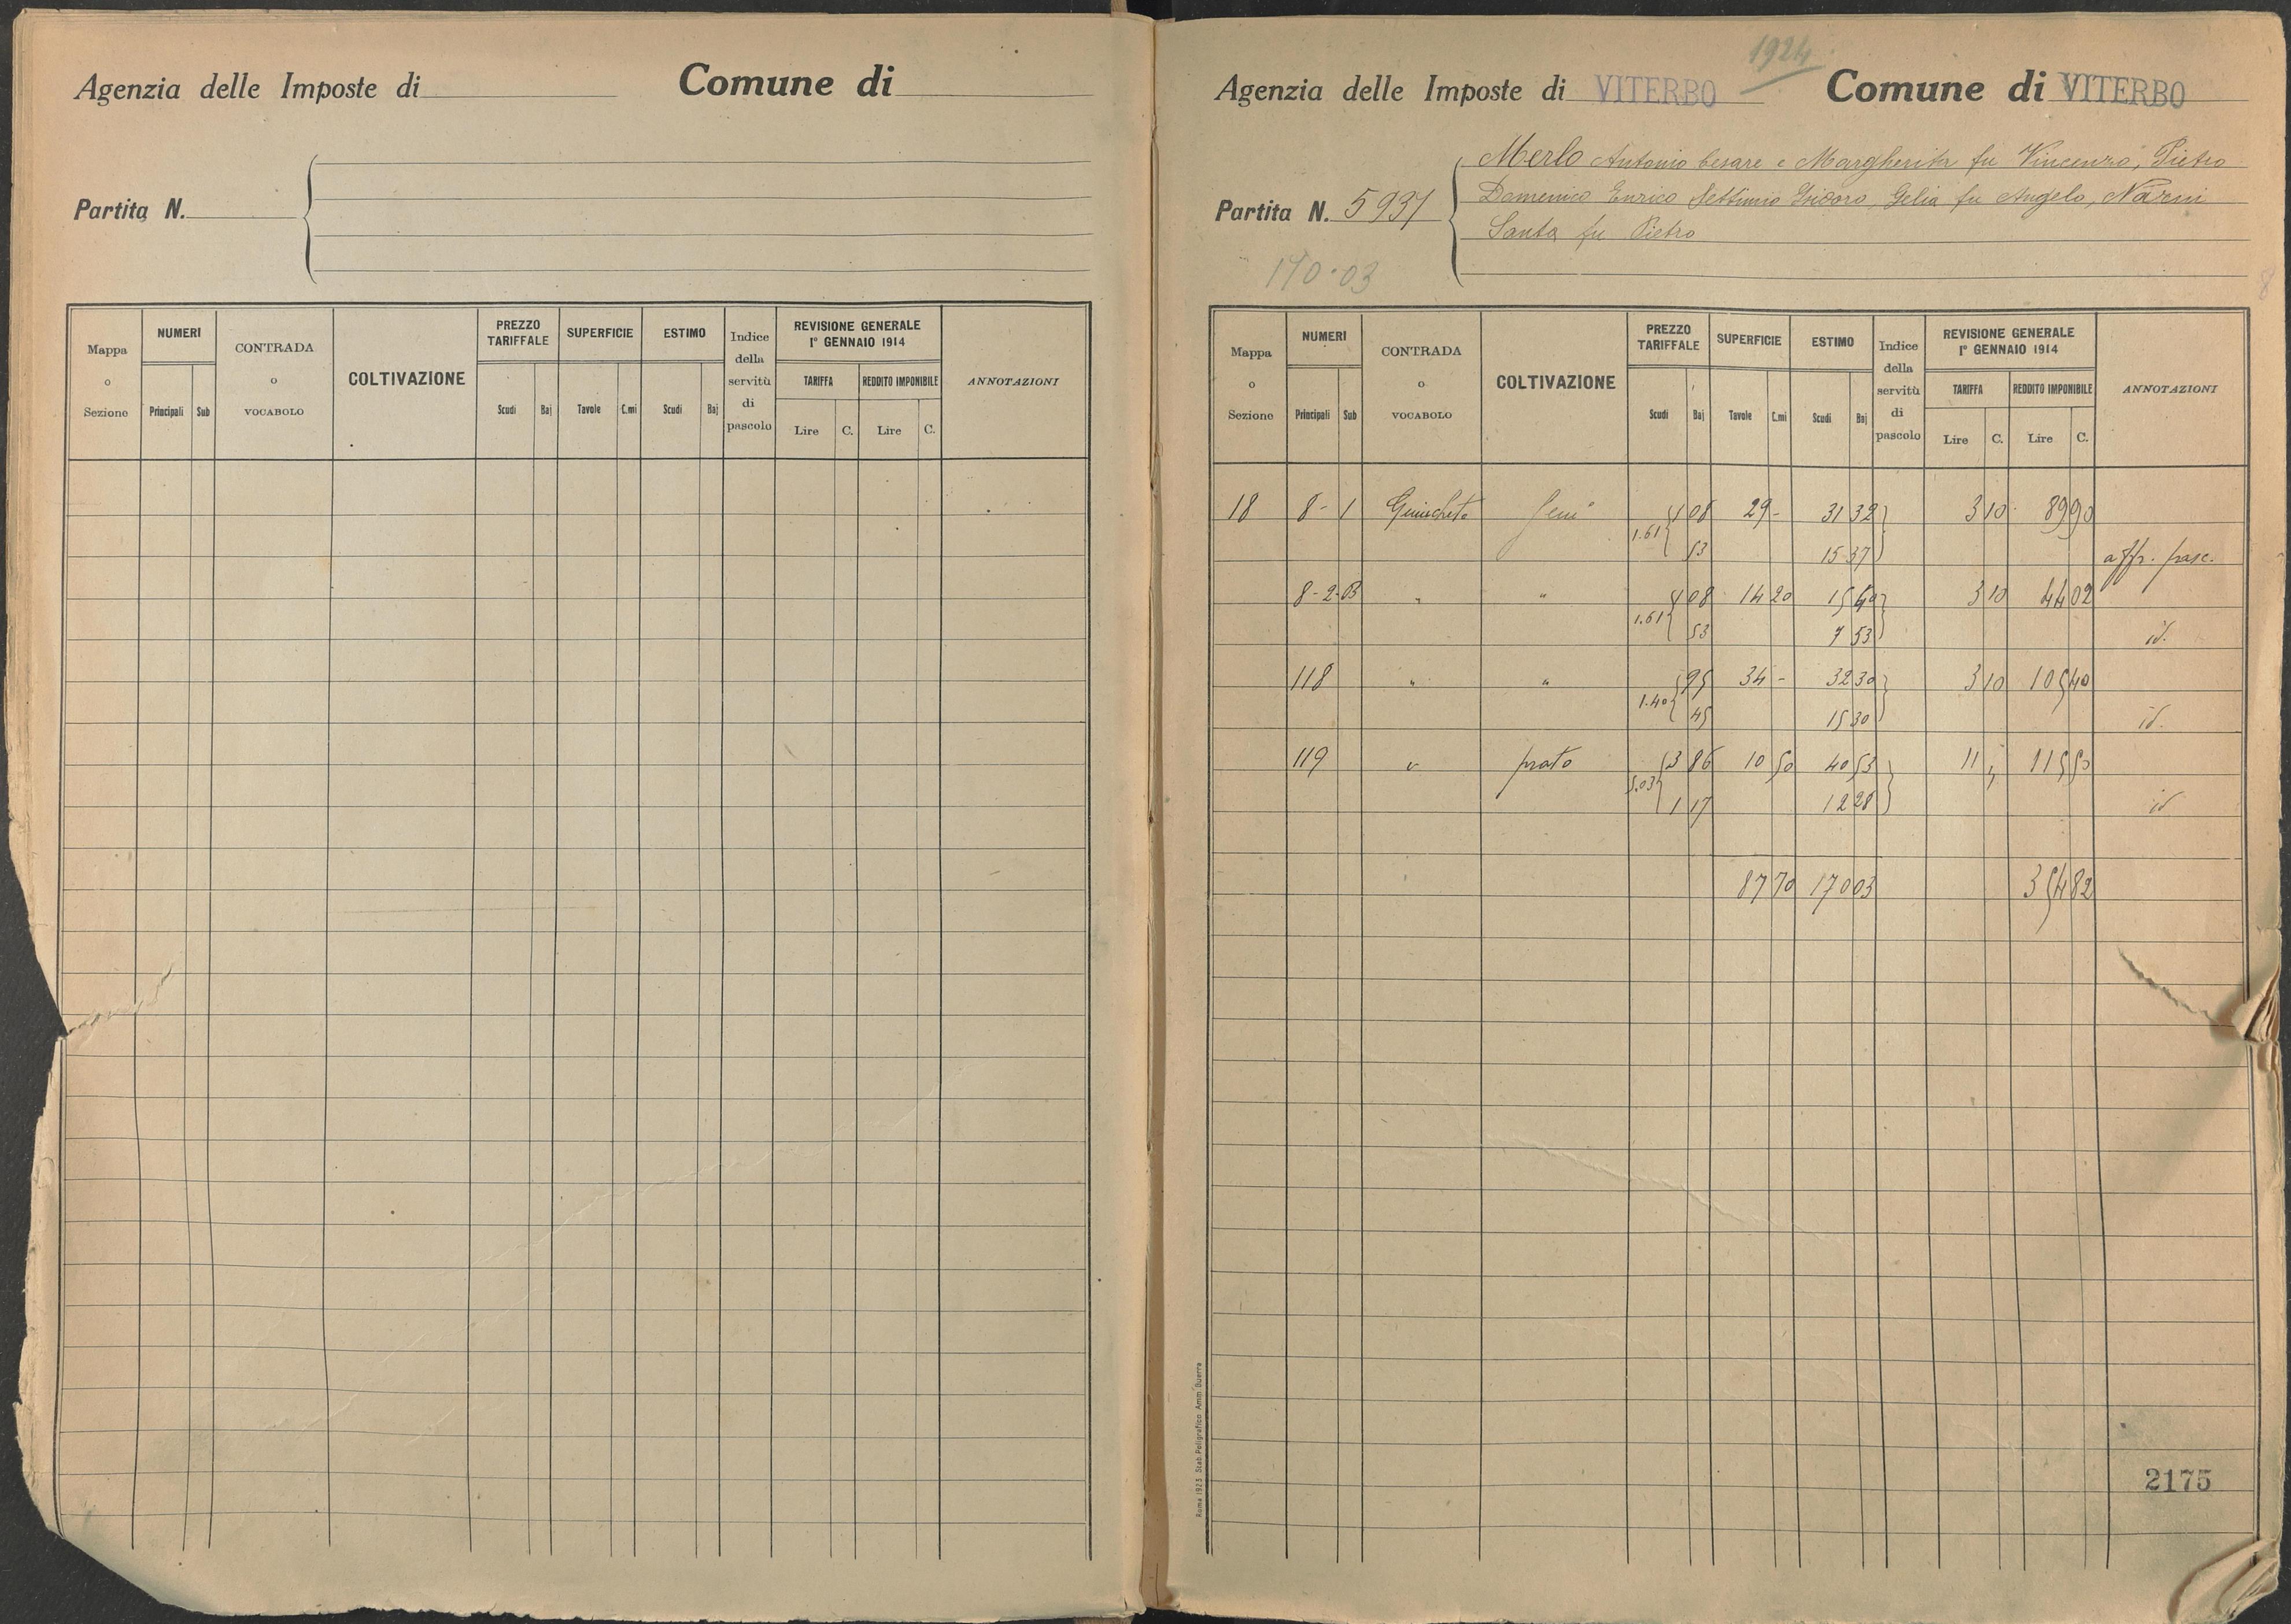 Agenzia delle Imposte di Comune di
Partita N.
Mappa o Sezione NUMERI CONTRADA o VOCABOLO COLTIVAZIONE PREZZO TARIFFALE SUPERFICIE ESTIMO Indice della servitù di pascolo REVISIONE GENERALE 1° GENNAIO 1914 ANNOTAZIONI
TARIFFA REDDITO IMPONIBILE
Principali Sub Scudi Baj Tavole C.mi Scudi Baj Lire C. Lire C.
1924
Agenzia delle Imposte di VITERBO Comune di VITERBO
Merlo Antonio Cesare e Margherita fu Vincenzo, Pietro
Partita N. 5937 Domenico Enrico Settimio Isidoro, Gelia fu Angelo, Narni
Santa fu Pietro
170.03
8
Mappa o Sezione NUMERI CONTRADA o VOCABOLO COLTIVAZIONE PREZZO TARIFFALE SUPERFICIE ESTIMO Indice della servitù di pascolo REVISIONE GENERALE 1° GENNAIO 1914 ANNOTAZIONI
TARIFFA REDDITO IMPONIBILE
Principali Sub Scudi Baj Tavole C.mi Scudi Baj Lire C. Lire C.
18 8-1 1 08 29 - 31 32 3 10 89 90
1.61 53 15 37 aff. pasc.
8-2-B " " 1 08 14 20 15 40 3 10 44 02
1.61 53 7 53 id.
118 " " 95 34 - 32 30 3 10 105 40
1.40 45 15 30 id.
119 " prato 3 86 10 50 40 53 11 , 115 50
5.03 1 17 12 28 id
87 70 170 03 354 82
2175
Roma 1923 Stab. Poligrafico Amm. Guerra